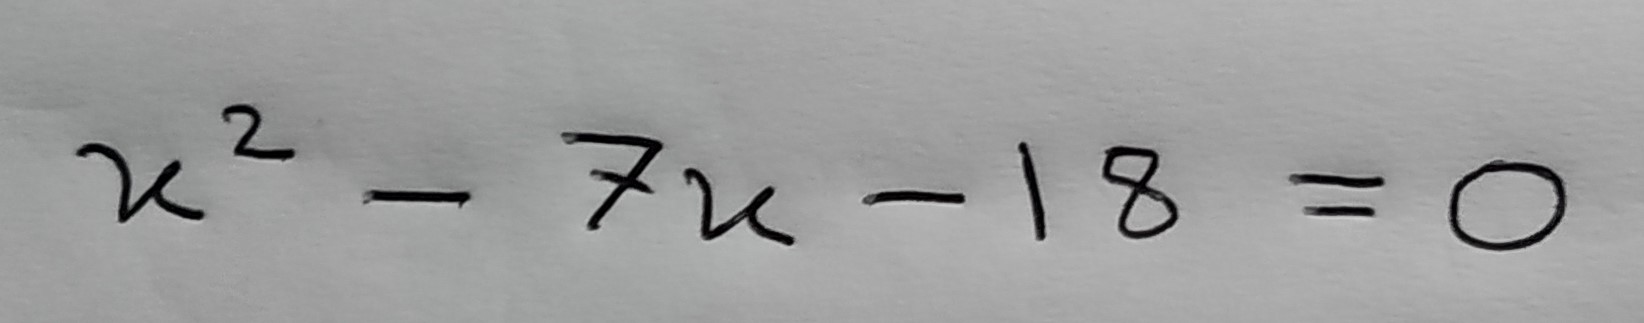 x² - 7x - 18 = 0